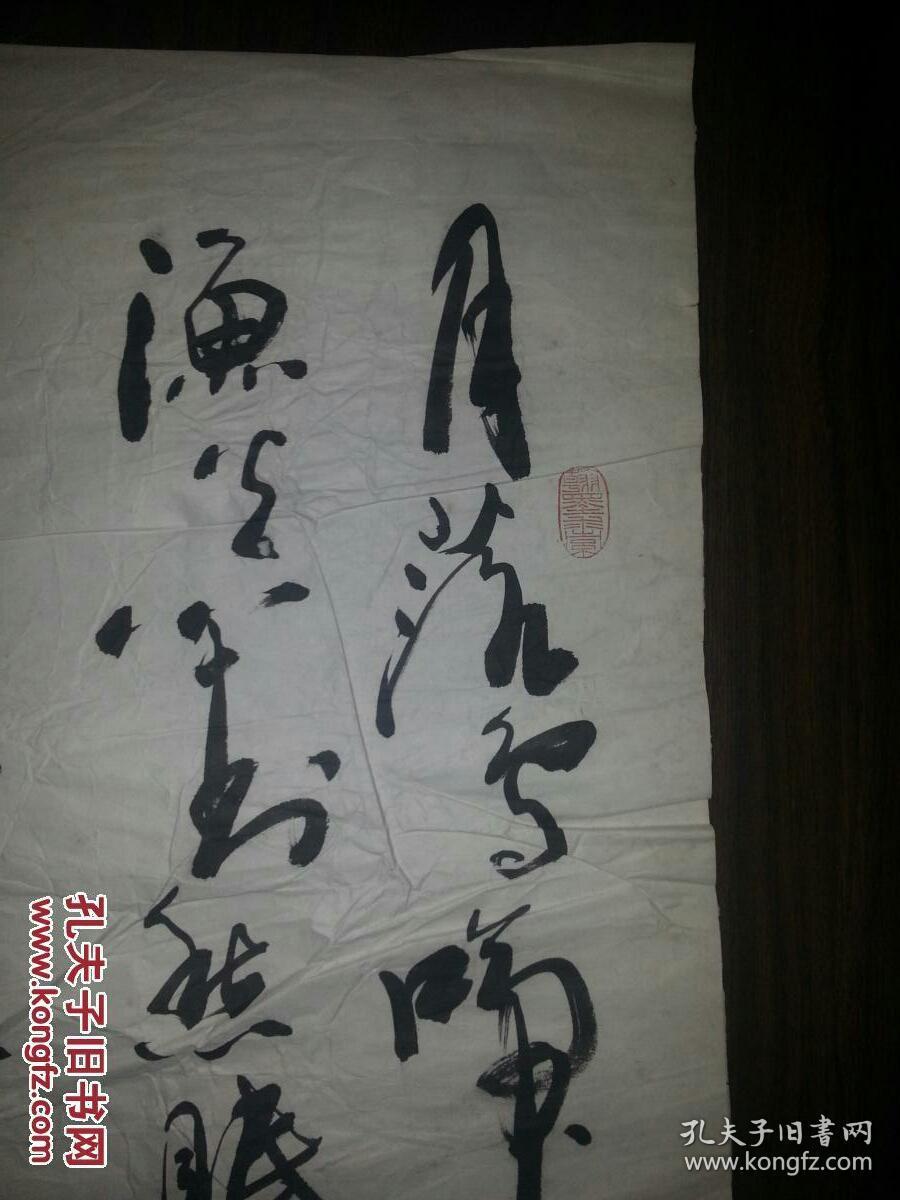 月落烏啼
漁火對愁眠
孔夫子旧书网
www.kongfz.com
孔夫子旧書网
www.kongfz.com